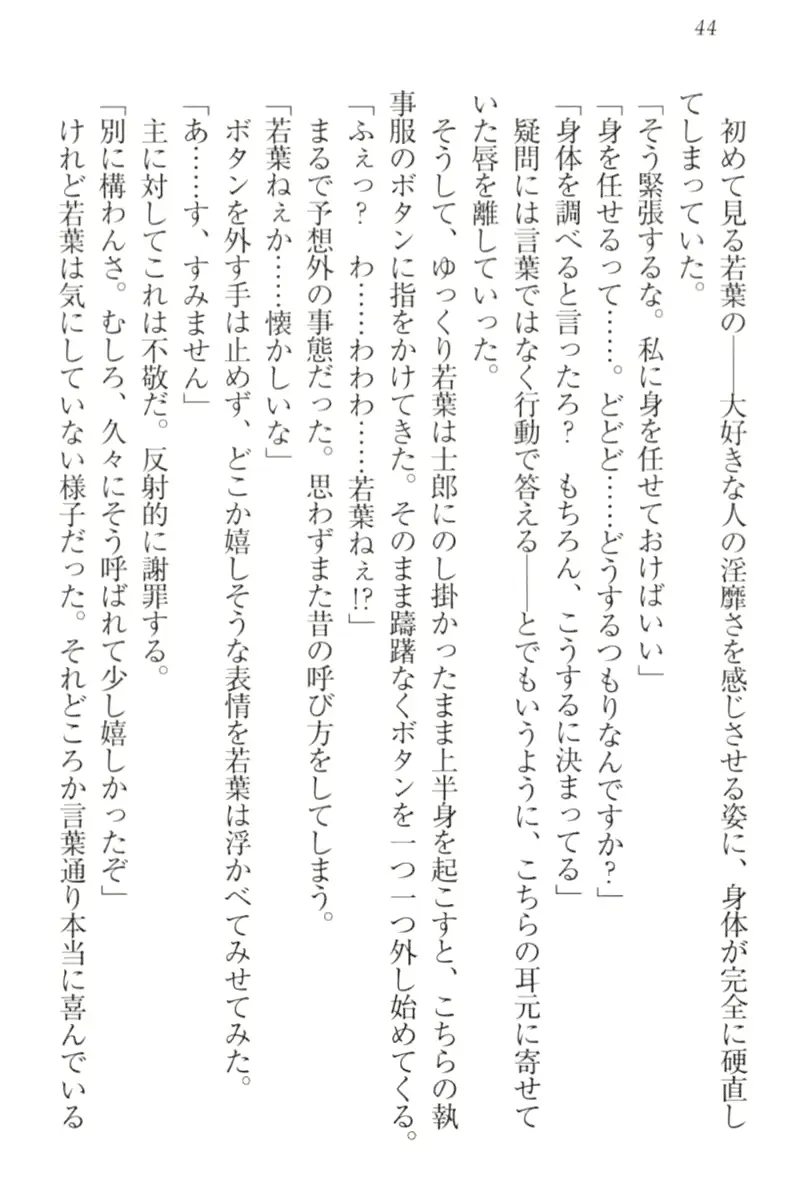 44
初めて見る若葉の――大好きな人の淫靡さを感じさせる姿に、身体が完全に硬直し
てしまっていた。
「そう緊張するな。私に身を任せておけばいい」
「身を任せるって……。どどど……どうするつもりなんですか？」
「身体を調べると言ったろ？　もちろん、こうするに決まってる」
疑問には言葉ではなく行動で答える――とでもいうように、こちらの耳元に寄せて
いた唇を離していった。
そうして、ゆっくり若葉は士郎にのし掛かったまま上半身を起こすと、こちらの執
事服のボタンに指をかけてきた。そのまま躊躇なくボタンを一つ一つ外し始めてくる。
「ふぇっ？　わ……わわわ……若葉ねぇ!?」
まるで予想外の事態だった。思わずまた昔の呼び方をしてしまう。
「若葉ねぇか……懐かしいな」
ボタンを外す手は止めず、どこか嬉しそうな表情を若葉は浮かべてみせてみた。
「あ……す、すみません」
主に対してこれは不敬だ。反射的に謝罪する。
「別に構わんさ。むしろ、久々にそう呼ばれて少し嬉しかったぞ」
けれど若葉は気にしていない様子だった。それどころか言葉通り本当に喜んでいる